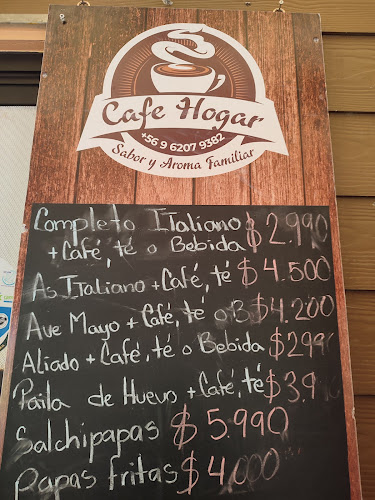 Cafe Hogar
+56 9 6207 9382
Sabor y Aroma Familiar
Completo Italiano $2.990
+ Café, té o Bebida
As Italiano + Café, té $4.500
Ave Mayo + Café, té o B $4.200
Aliado + Café, té o Bebida $299
Paila de Huevo + Café, té $3.9
Salchipapas $5.990
Papas fritas $4.000